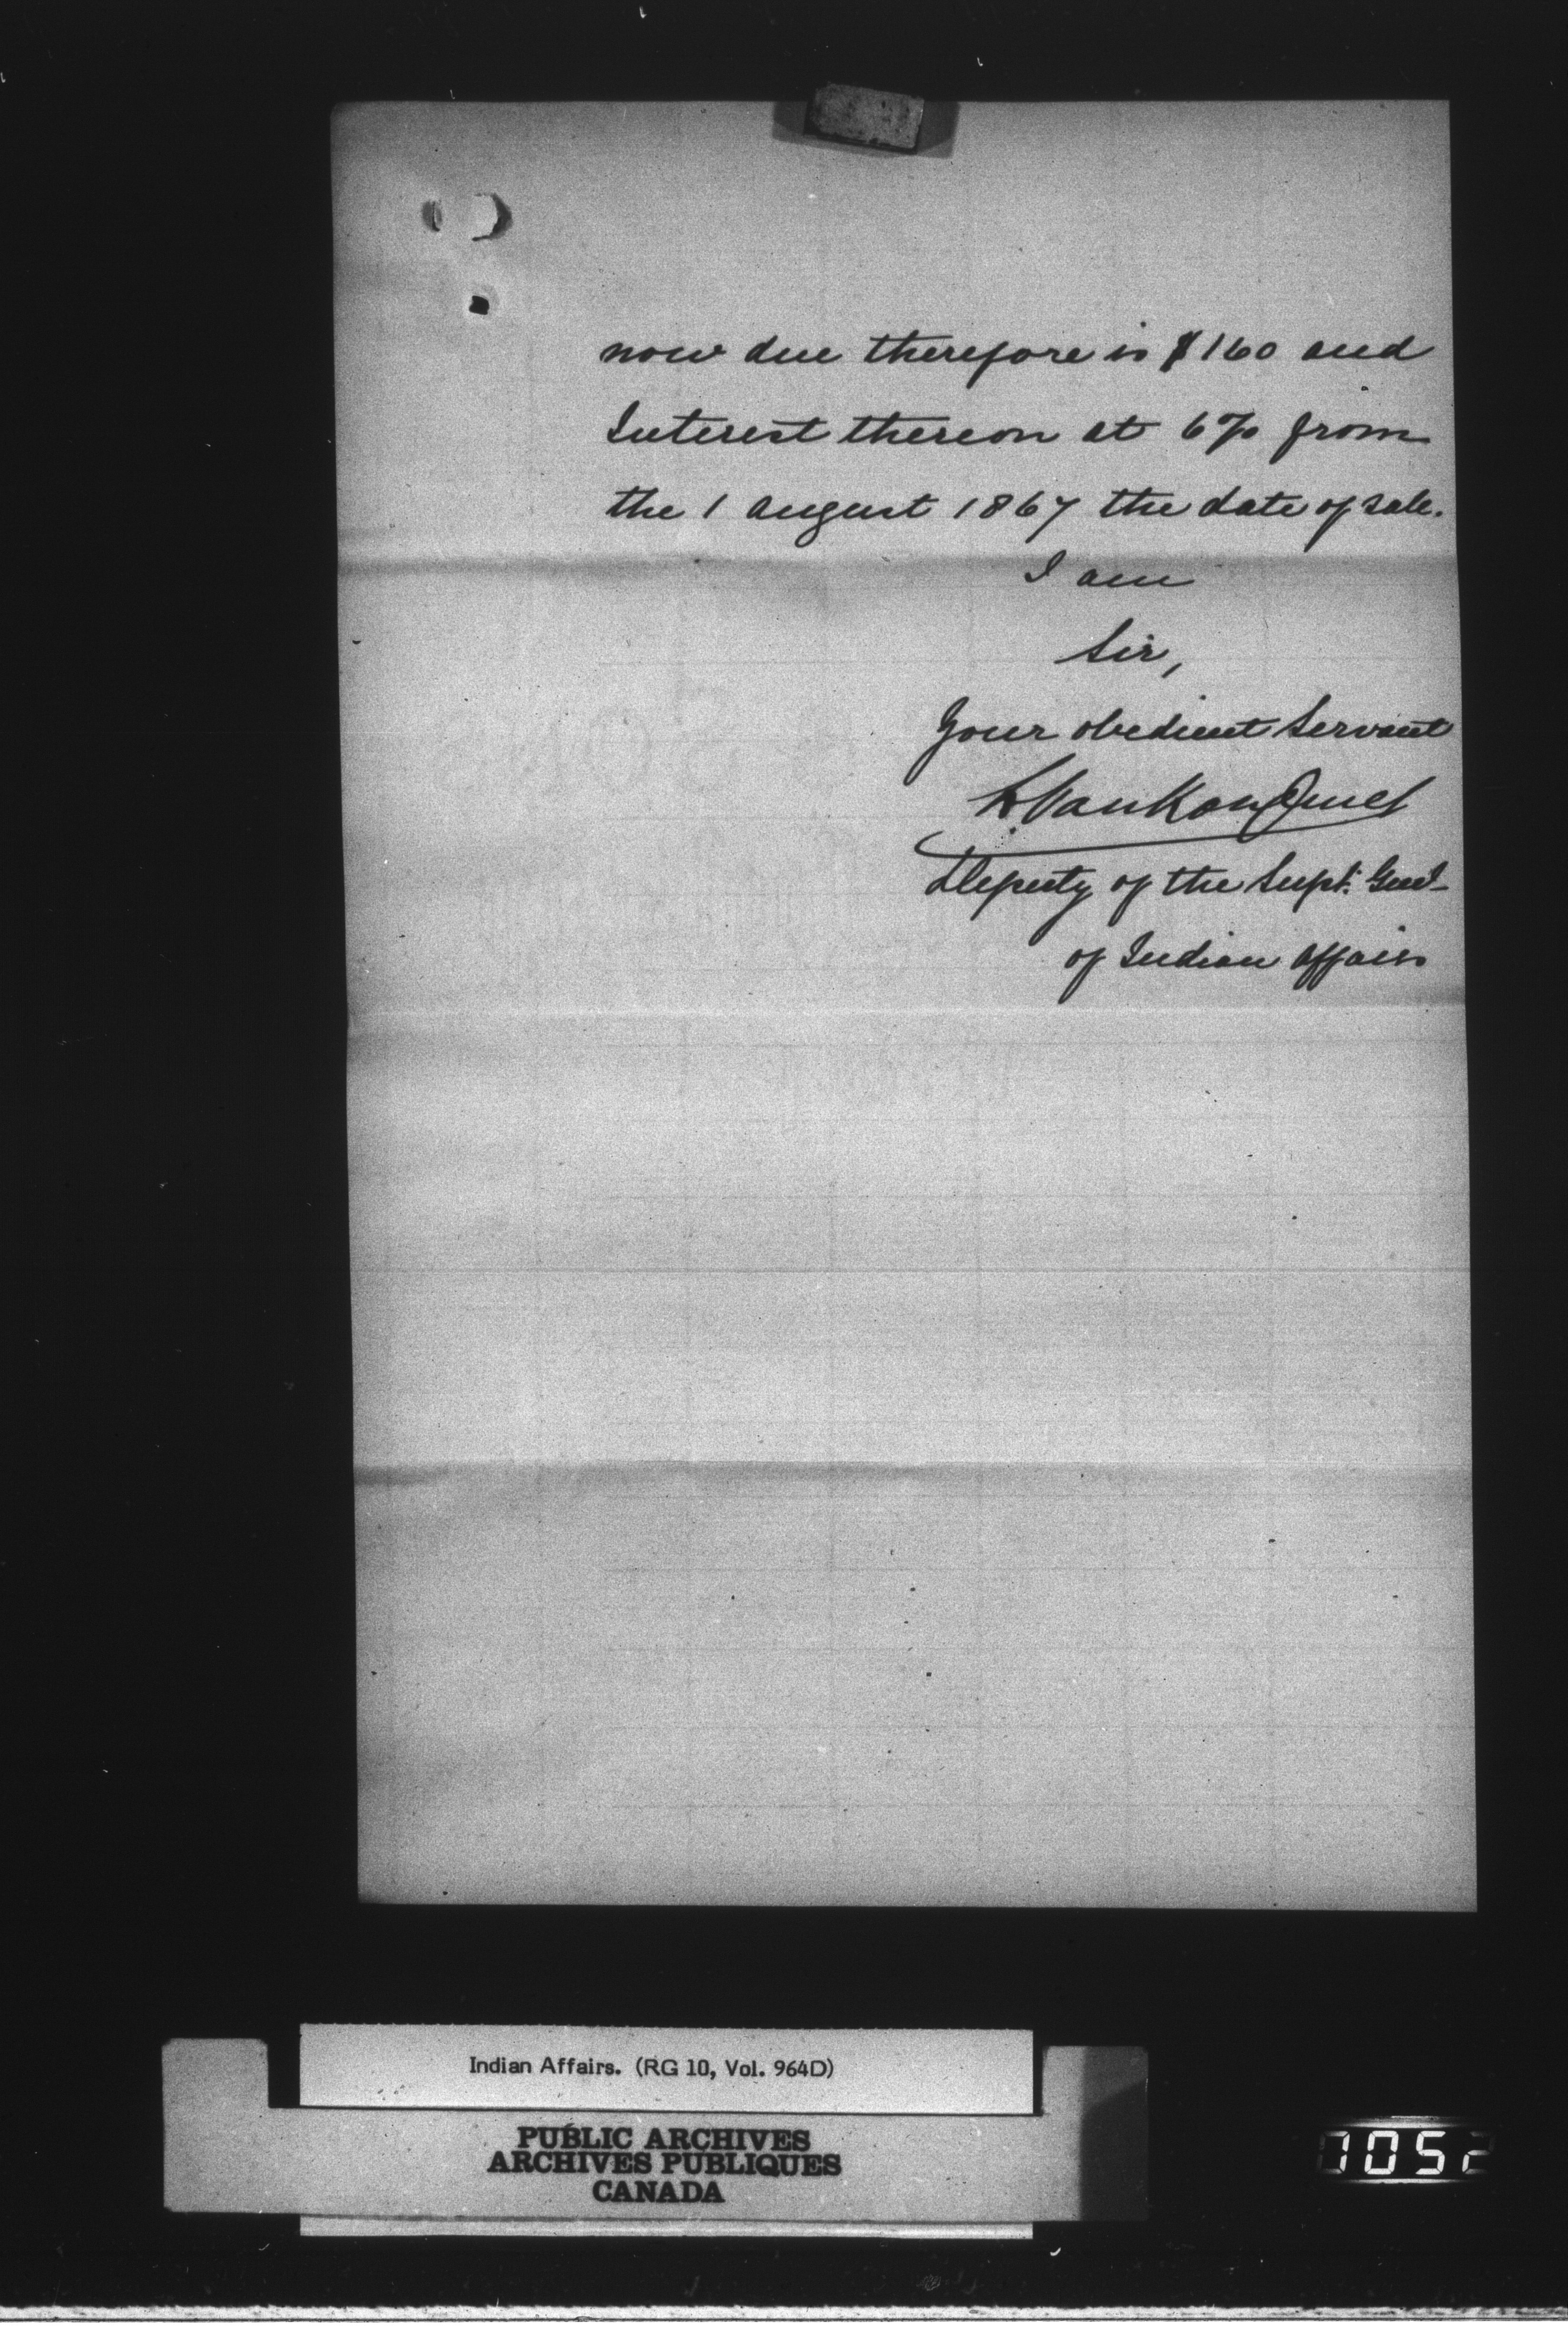 now due therefore is $160 and
Interest thereon at 6% from
the 1 August 1867 the date of sale.
I am
Sir,
Your obedient Servant
L. VanKoughnet
Deputy of the Supt. Genl
of Indian Affairs
Indian Affairs. (RG 10, Vol. 964D)
PUBLIC ARCHIVES
ARCHIVES PUBLIQUES
CANADA
1052